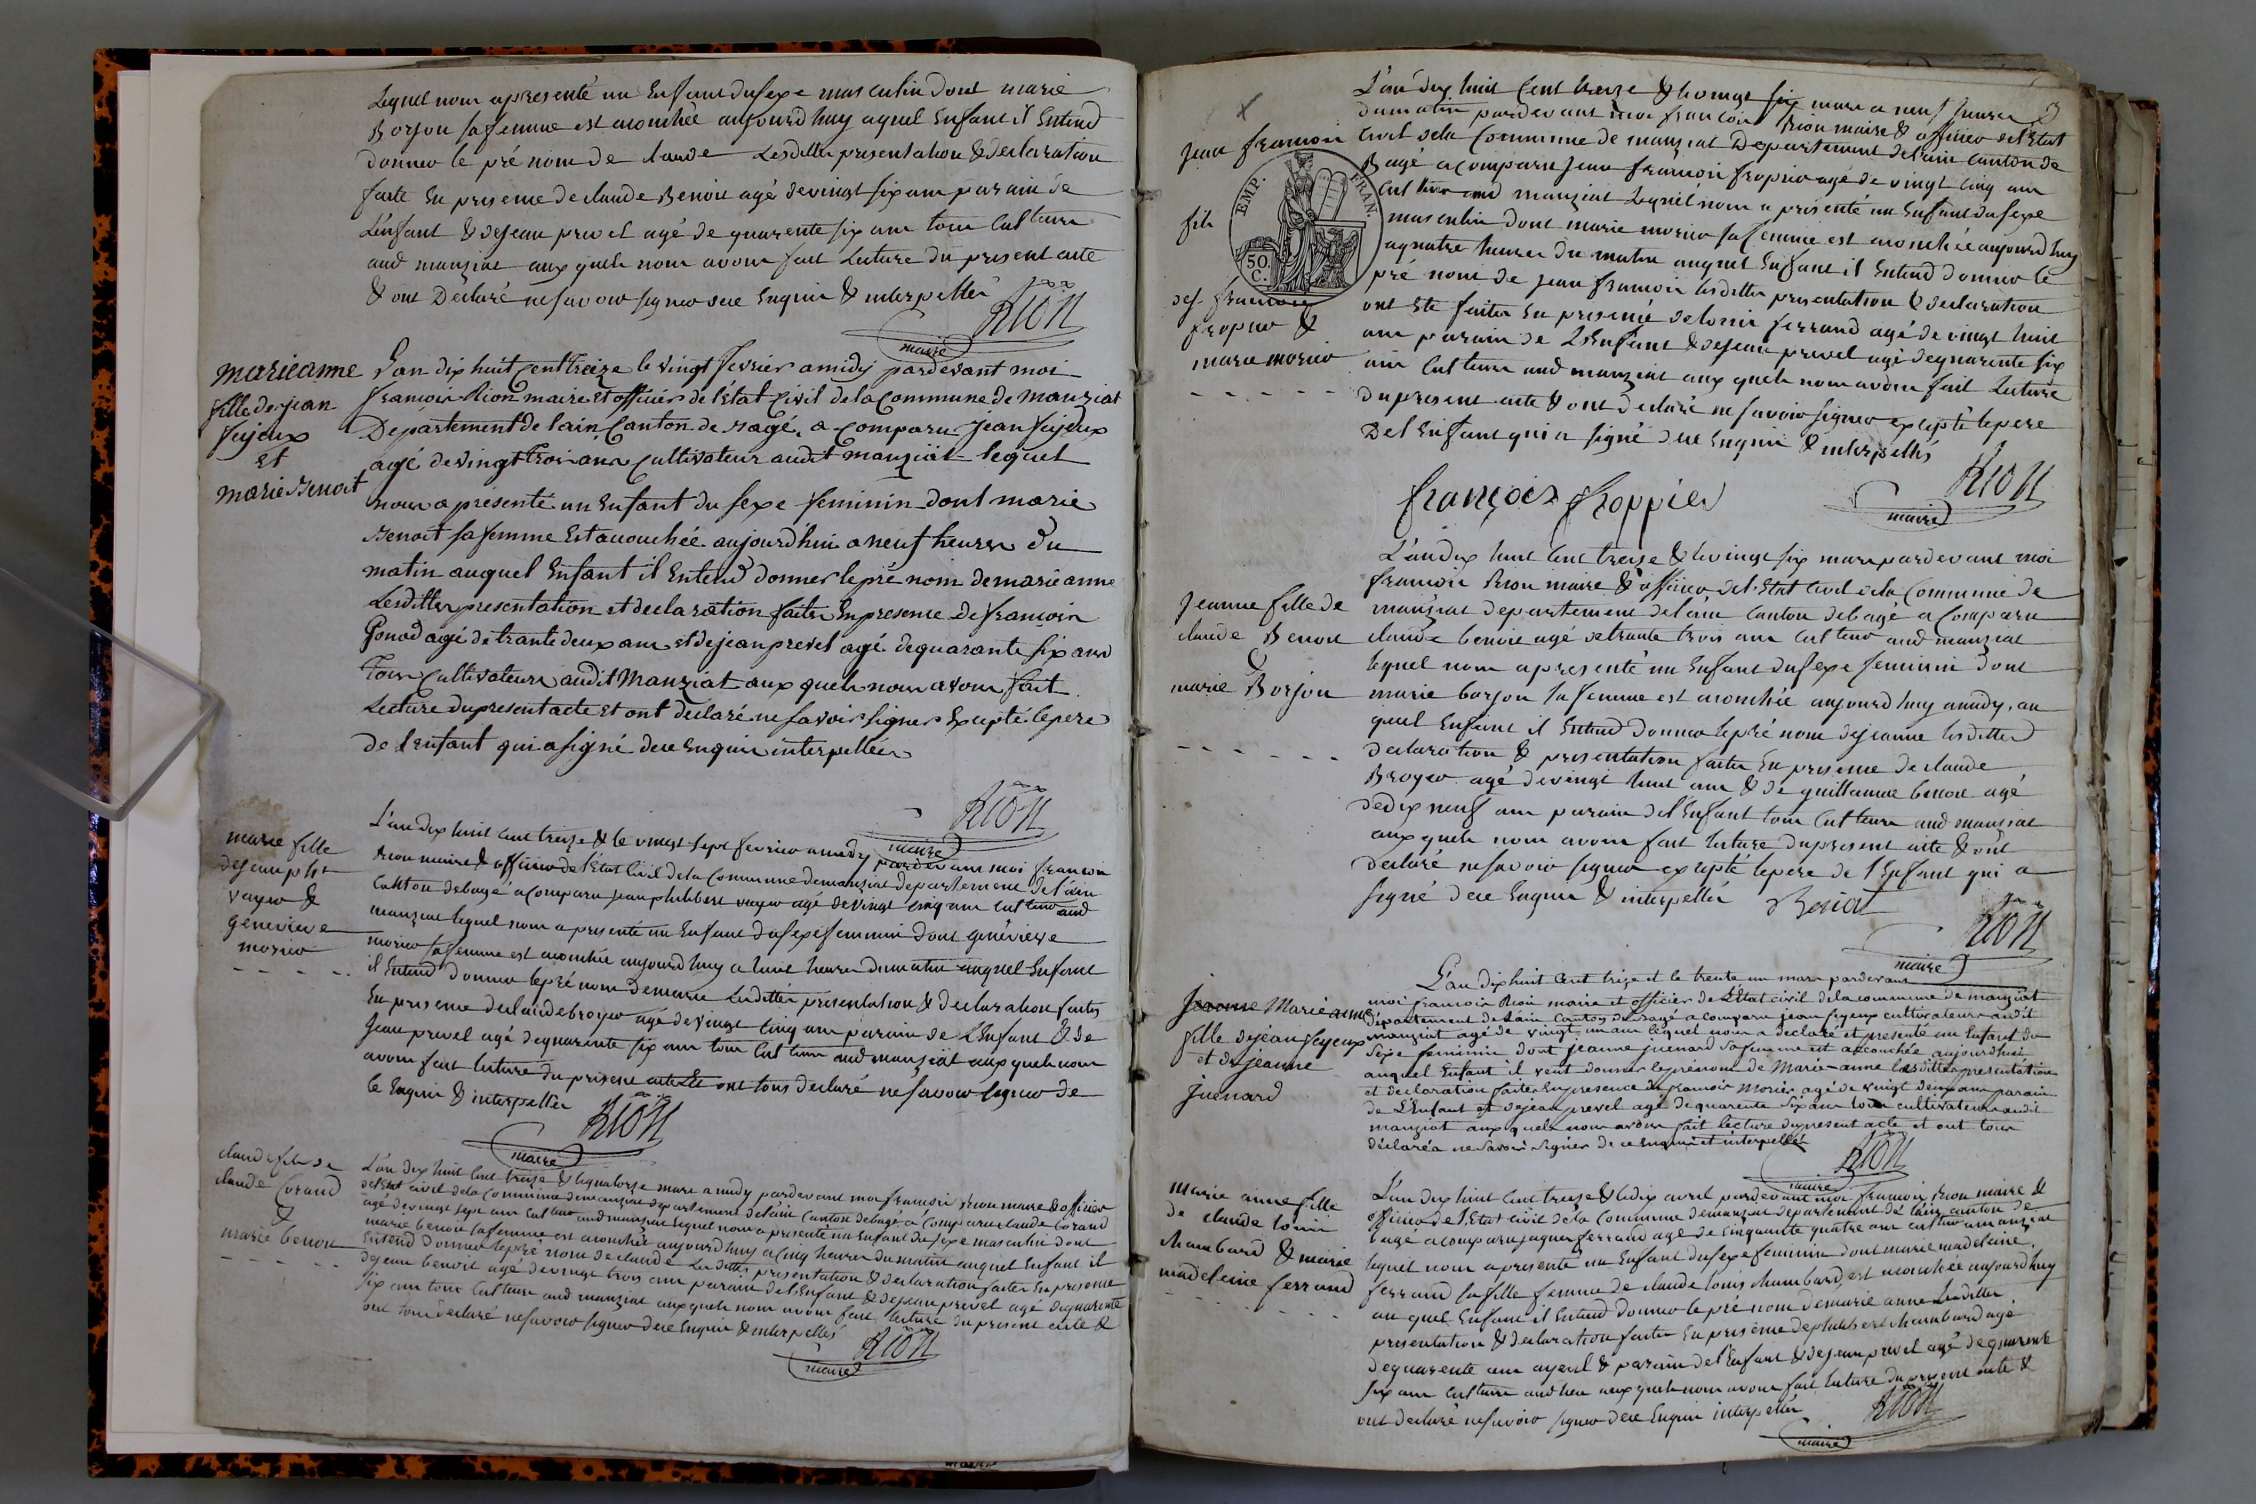 Lequel nous a presenté un Enfant du sexe masculin dont marie
Borjon sa femme est acouchée aujourd huy aquel Enfant il Entend
donner le pré nom de claude Lesdittes presentation & declaration
faite En presence de claude Benoit agé de vingt six ans parain de
L'enfant & de jean prevel agé de quarente six ans tous Cult.teurs
aud manziat aux quels nous avons fait Lecture du present acte
& ont Déclaré ne savoir signer de ce Enquis & interpellés
Rion
maire
marie anne
fille de jean
fejeux
Et
marie Benoit
L'an dix huit Cent Treize le vingt fevrier a midy pardevant moi
francois Rion maire Et officier de l'état Civil de la Commune de Manziat
Departement de lain, Canton de Bagé, a Comparu Jean fejeux
agé de vingt trois ans Cultivateur audit manziat lequel
nous a présenté un Enfant du sexe feminin dont marie
Benoit sa femme Est acouchée aujourd'hui a neuf heures du
matin auquel Enfant il Entend donner le pré nom de marie anne
Lesdittes presentation et declaration faites En presence De francois
Gonod agé de trante deux ans et de jean prevel agé de quarante six ans
Tous Cultivateurs audit Manziat aux quels nous avons fait
Lecture du present acte Et ont declaré ne savoir signer Excepté le pere
de l'enfant qui a signé de ce Enquis interpellés
Rion
maire
marie fille
de jean ph.t
vayer &
genevieve
morier
L'an dix huit Cent treize & le vingt sept fevrier a midy pardevant moi francois
Rion maire & officier de l'état Civil de la Commune de manziat departement de l'ain
Canton de bagé a Comparu jean philibert vayer agé de vingt cinq ans Cult.teur aud
manziat lequel nous a presenté un Enfant du sexe feminin dont genévieve
morier sa femme est acouchée aujourd huy a huit heures du matin auquel Enfant
il Entend donner le pré nom de marie Lesdittes présentation & declaration faites
En presence de claude broyer agé de vingt cinq ans parain de L'Enfant & de
Jean prevel agé de quarente six ans tous Cult.teurs aud manziat aux quels nous
avons fait lecture du present acte Et ont tous declaré ne savoir signer de
ce Enquis & interpellés
Rion
maire
claude fils de
claude Corand
&
marie benoit
L'an dix huit Cent treize & le quatorze mars a midy pardevant moi francois Rion maire & officier
de l'Etat civil de la Commune de manziat departement de l'ain Canton de bagé a Comparu claude Corand
agé de vingt sept ans Cult.teur aud manziat lequel nous a presenté un Enfant du sexe masculin dont
marie benoit sa femme est acouchée aujourd huy a cinq heures du matin auquel Enfant il
Entend donner le pré nom de claude Lesdittes presentation & declaration faites En presence
de jean benoit agé de vingt trois ans parain de l'Enfant & de jean prevel agé de quarente
six ans tous Cult.teurs aud manziat aux quels nous avons fait lecture du present acte &
ont tous declaré ne savoir signer de ce Enquis & interpellés
Rion
maire
3
Jean francois
fils
de francois
fropier &
marie morier
EMP. FRAN.
50 C.
L'an dix huit Cent treize & le vingt six mars a neuf heures
du matin pardevant moi francois Rion maire & officier de l'Etat
Civil de la Commune de manziat Departement de l'ain canton de
Bagé a comparu Jean francois fropier agé de vingt cinq ans
Cult.teur aud manziat Lequel nous a présenté un Enfant du sexe
masculin dont marie morier sa femme est acouchée aujourd huy
a quatre heures du matin auquel Enfant il Entend donner le
pré nom de jean francois lesdittes presentation & declaration
ont Eté faites En presence de louis ferrand agé de vingt huit
ans parain de L'Enfant & de jean prevel agé de quarente six
ans Cult.teurs aud manziat aux quels nous avons fait Lecture
du present acte & ont declaré ne savoir signer excepté le pere
De l'Enfant qui a signé de ce Enquis & interpellés
françois froppier
Rion
maire
Jeanne fille de
claude Benoit
&
marie Borjon
L'an dix huit Cent treize & le vingt six mars pardevant moi
francois Rion maire & officier de l'Etat Civil de la Commune de
manziat departement de l'ain Canton de bagé a Comparu
claude benoit agé de trante trois ans Cult.teur aud manziat
lequel nous a presenté un Enfant du sexe feminin dont
marie borjon sa femme est acouchée aujourd huy a midy, au
quel Enfant il Entend donner le pré nom de jeanne lesdittes
declaration & presentation faites En presence de claude
Broyer agé de vingt huit ans & de guillaume benoit agé
de dix neuf ans parain de l'Enfant tous Cult.teurs aud manziat
aux quels nous avons fait lecture du present acte & ont
declaré ne savoir signer excepté le pere de l'Enfant qui a
signé de ce Enquis & interpellés
Benoit
Rion
maire
Jeanne Marie anne
fille de jean fejeux
et de jeanne
juenard
L'an dix huit Cent treize et le trente un mars pardevant
moi francois Rion maire et officier de l'Etat civil de la commune de manziat
departement de l'ain Canton de Bagé a comparu jean fejeux cultivateur audit
manziat agé de vingt un ans lequel nous a declaré et presenté un Enfant du
sexe feminin dont jeanne juenard sa femme est accouchée aujourd'hui
auquel Enfant il veut donner le prénom de Marie-anne lesdittes presentation
et declaration faites En presence de francois Morier agé de vingt deux ans parain
de L'Enfant et de jean prevel agé de quarente six ans tous cultivateurs audit
manziat aux quels nous avons fait lecture du present acte et ont tous
déclarés ne savoir signer de ce Enquis et interpellés
Rion
maire
Marie anne fille
de claude louis
chambard & marie
madeleine ferrand
L'an dix huit Cent treize & le dix avril pardevant moi francois Rion maire &
officier de l'Etat Civil de la Commune de manziat departement de l'ain canton de
bagé a comparu jaques ferrand agé de Cinquante quatre ans cult.teur a manziat
lequel nous a presenté un Enfant du sexe feminin dont marie madeleine
ferrand sa fille femme de claude louis chambard, est acouchée aujourd huy
au quel Enfant il Entend donner le pré nom de marie anne Lesdittes
presentation & declaration faites En presence de philibert chambard agé
de quarente ans ayeul & parain de l'Enfant & de jean prevel agé de quarente
six ans Cult.teurs aud lieu aux quels nous avons fait lecture du present acte &
ont declaré ne savoir signer de ce Enquis interpellés
Rion
maire